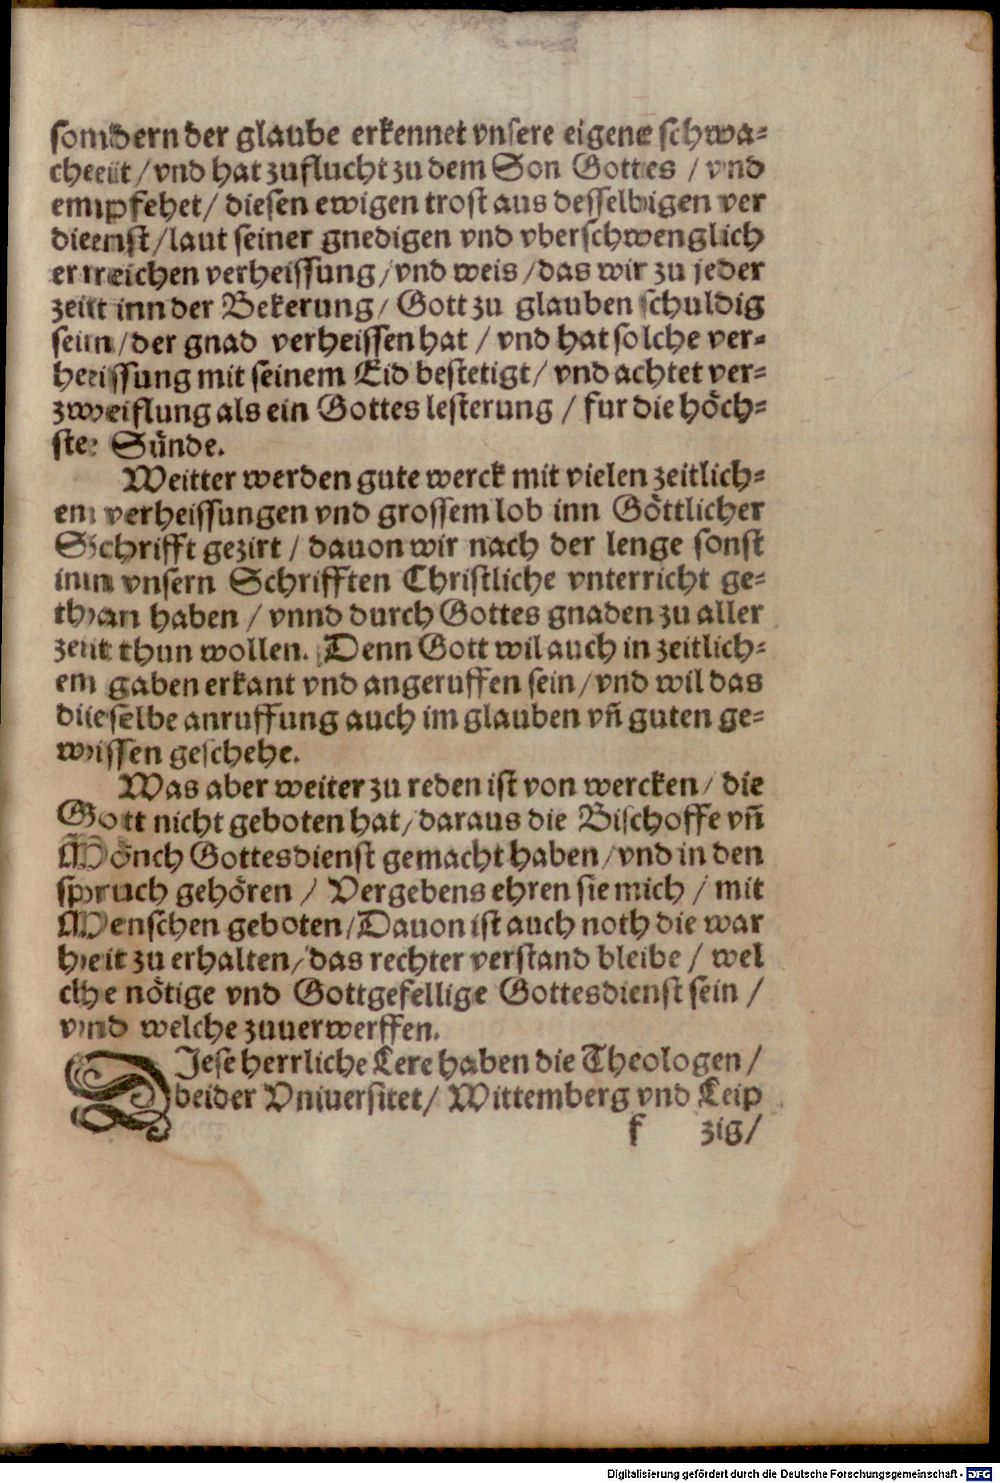 sondern der glaube erkennet vnsere eigene schwa-
cheeit / vnd hat zuflucht zu dem Son Gottes / vnd
empfehet / diesen ewigen trost aus desselbigen ver
dienst / laut seiner gnedigen vnd vberschwenglich
er reichen verheissung / vnd weis / das wir zu jeder
zeit inn der Bekerung / Gott zu glauben schuldig
sein / der gnad verheissen hat / vnd hat solche ver-
heissung mit seinem Eid bestetigt / vnd achtet ver-
zweiflung als ein Gottes lesterung / fur die höch-
ste Sünde.
Weitter werden gute werck mit vielen zeitlich-
en verheissungen vnd grossem lob inn Göttlicher
Schrifft gezirt / dauon wir nach der lenge sonst
inn vnsern Schrifften Christliche vnterricht ge-
than haben / vnnd durch Gottes gnaden zu aller
zeit thun wollen. Denn Gott wil auch in zeitlich-
en gaben erkant vnd angeruffen sein / vnd wil das
dieselbe anruffung auch im glauben vñ guten ge-
wissen geschehe.
Was aber weiter zu reden ist von wercken / die
Gott nicht geboten hat / daraus die Bischoffe vñ
Mönch Gottesdienst gemacht haben / vnd in den
spruch gehören / Vergebens ehren sie mich / mit
Menschen geboten / Dauon ist auch noth die war
heit zu erhalten / das rechter verstand bleibe / wel
che nötige vnd Gottgefellige Gottesdienst sein /
vnd welche zuuerwerffen.
DIese herrliche Lere haben die Theologen /
beider Vniuersitet / Wittemberg vnd Leip
f zig /
Digitalisierung gefördert durch die Deutsche Forschungsgemeinschaft - DFG